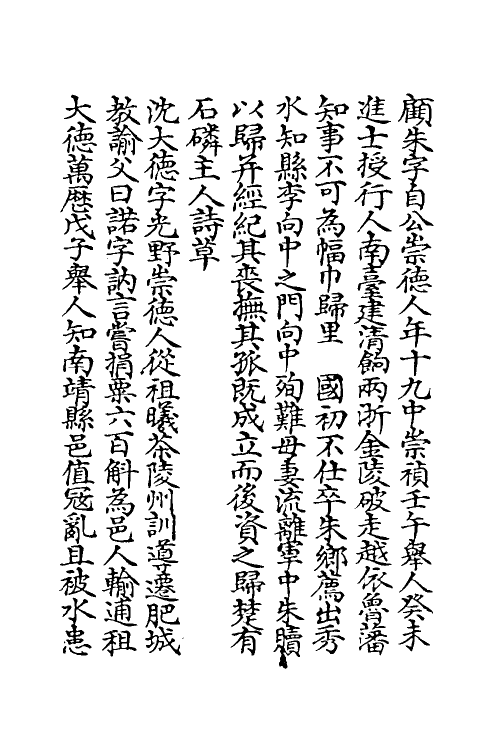 顧朱字自公崇德人年十九中崇禎壬午舉人癸未
進士授行人南臺建清餉兩浙金陵破走越依魯藩
知事不可為幅巾歸里　國初不仕卒朱鄉薦出秀
水知縣李向中之門向中殉難母妻流離軍中朱贖
以歸并經紀其喪撫其孤既成立而後資之歸楚有
石磷主人詩草
沈大德字光野崇德人從祖曦茶陵州訓導遷肥城
教諭父曰諾字訥言嘗捐粟六百斛為邑人輸逋租
大德萬厯戊子舉人知南靖縣邑值冦亂且被水患